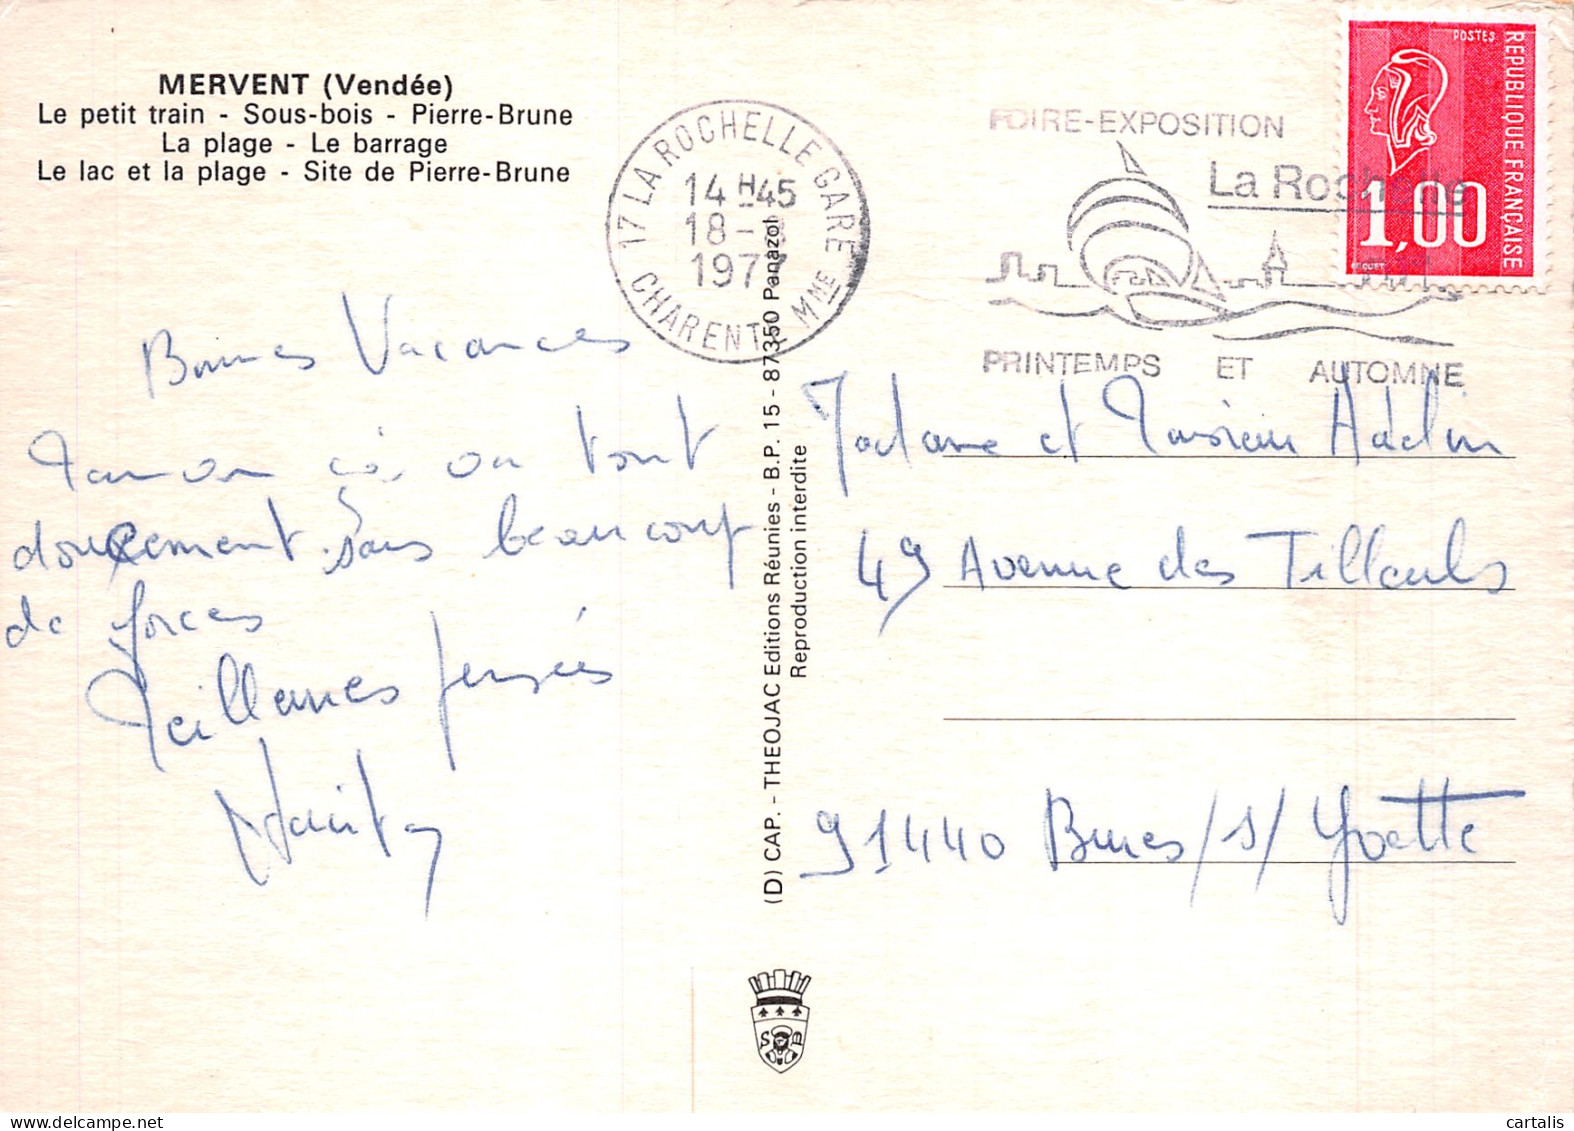 MERVENT (Vendée)
Le petit train - Sous-bois - Pierre-Brune
La plage - Le barrage
Le lac et la plage - Site de Pierre-Brune
17 LA ROCHELLE GARE
14 H 45
18 -
1977
CHARENTE Mme
FOIRE-EXPOSITION
La Rochelle
PRINTEMPS ET AUTOMNE
POSTES
REPUBLIQUE FRANÇAISE
1,00
BEQUET
Bonnes Vacances
on tout
doucement sans beaucoup
de forces
Meilleures pensées
(D) CAP. - THEOJAC Editions Réunies - B.P. 15 - 87350 Panazol
Reproduction interdite
Madame et Monsieur
49 Avenue des Tilleuls
91440 Bures/s/Yvette
S M
www.delcampe.net
cartalis